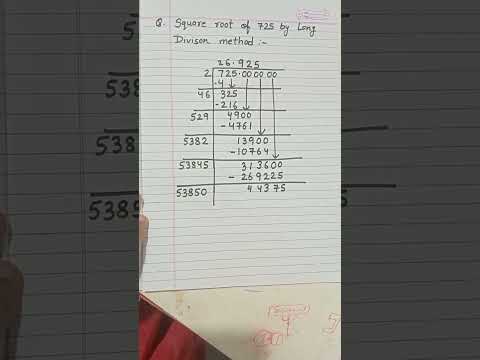 Q. Square root of 725 by Long
Divison method :-
26.925
2 725.00 00 00
-4
46 325
-216
529 4900
-4761
5382 13900
-10764
53845 313600
- 269225
53850 44375